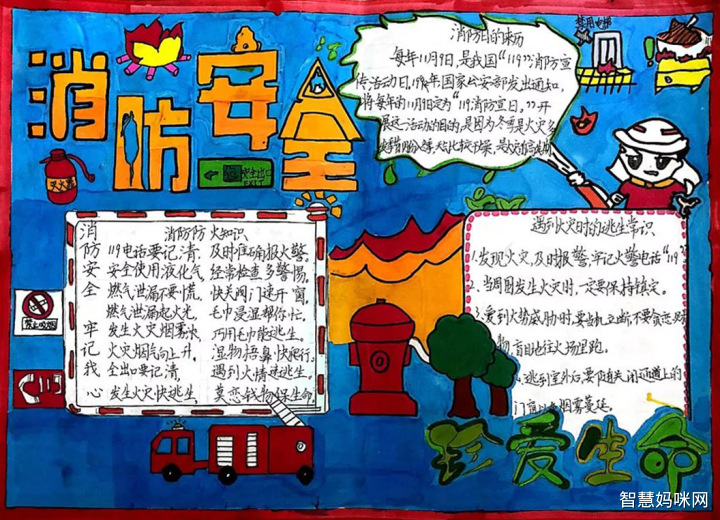 消防安全
灭火器
安全出口
EXIT
禁用电梯
消防日的来历
每年11月9日,是我国“119”消防宣
传活动日,1992年国家公安部发出通知,
将每年的11月9日定为“119消防宣日”,开
展这一活动的目的,是因为冬季是火灾多
消防安全牢记我心
消防防火知识
119电话要记清,及时准确报火警。
安全使用液化气,经常检查多警惕。
燃气泄漏不要慌,快关阀门速开窗。
燃气泄漏起火光,毛巾浸湿帮你忙。
发生火灾烟雾浓,巧用毛巾能逃生。
火灾烟气向上升,湿物捂鼻快爬行。
全出口要记清,遇到火情速逃生。
发生火灾快逃生,莫恋钱物保生命。
禁止吸烟
遇到火灾时的逃生常识
1.发现火灾,及时报警,牢记火警电话“119”
2、当周围发生火灾时,一定要保持镇定。
3.受到火势威胁时,要当机立断不要贪恋财
物,盲目地往火场里跑。
4.逃到室外后,要随手关闭通道上的
门窗以免烟雾蔓延。
珍爱生命
智慧妈咪网